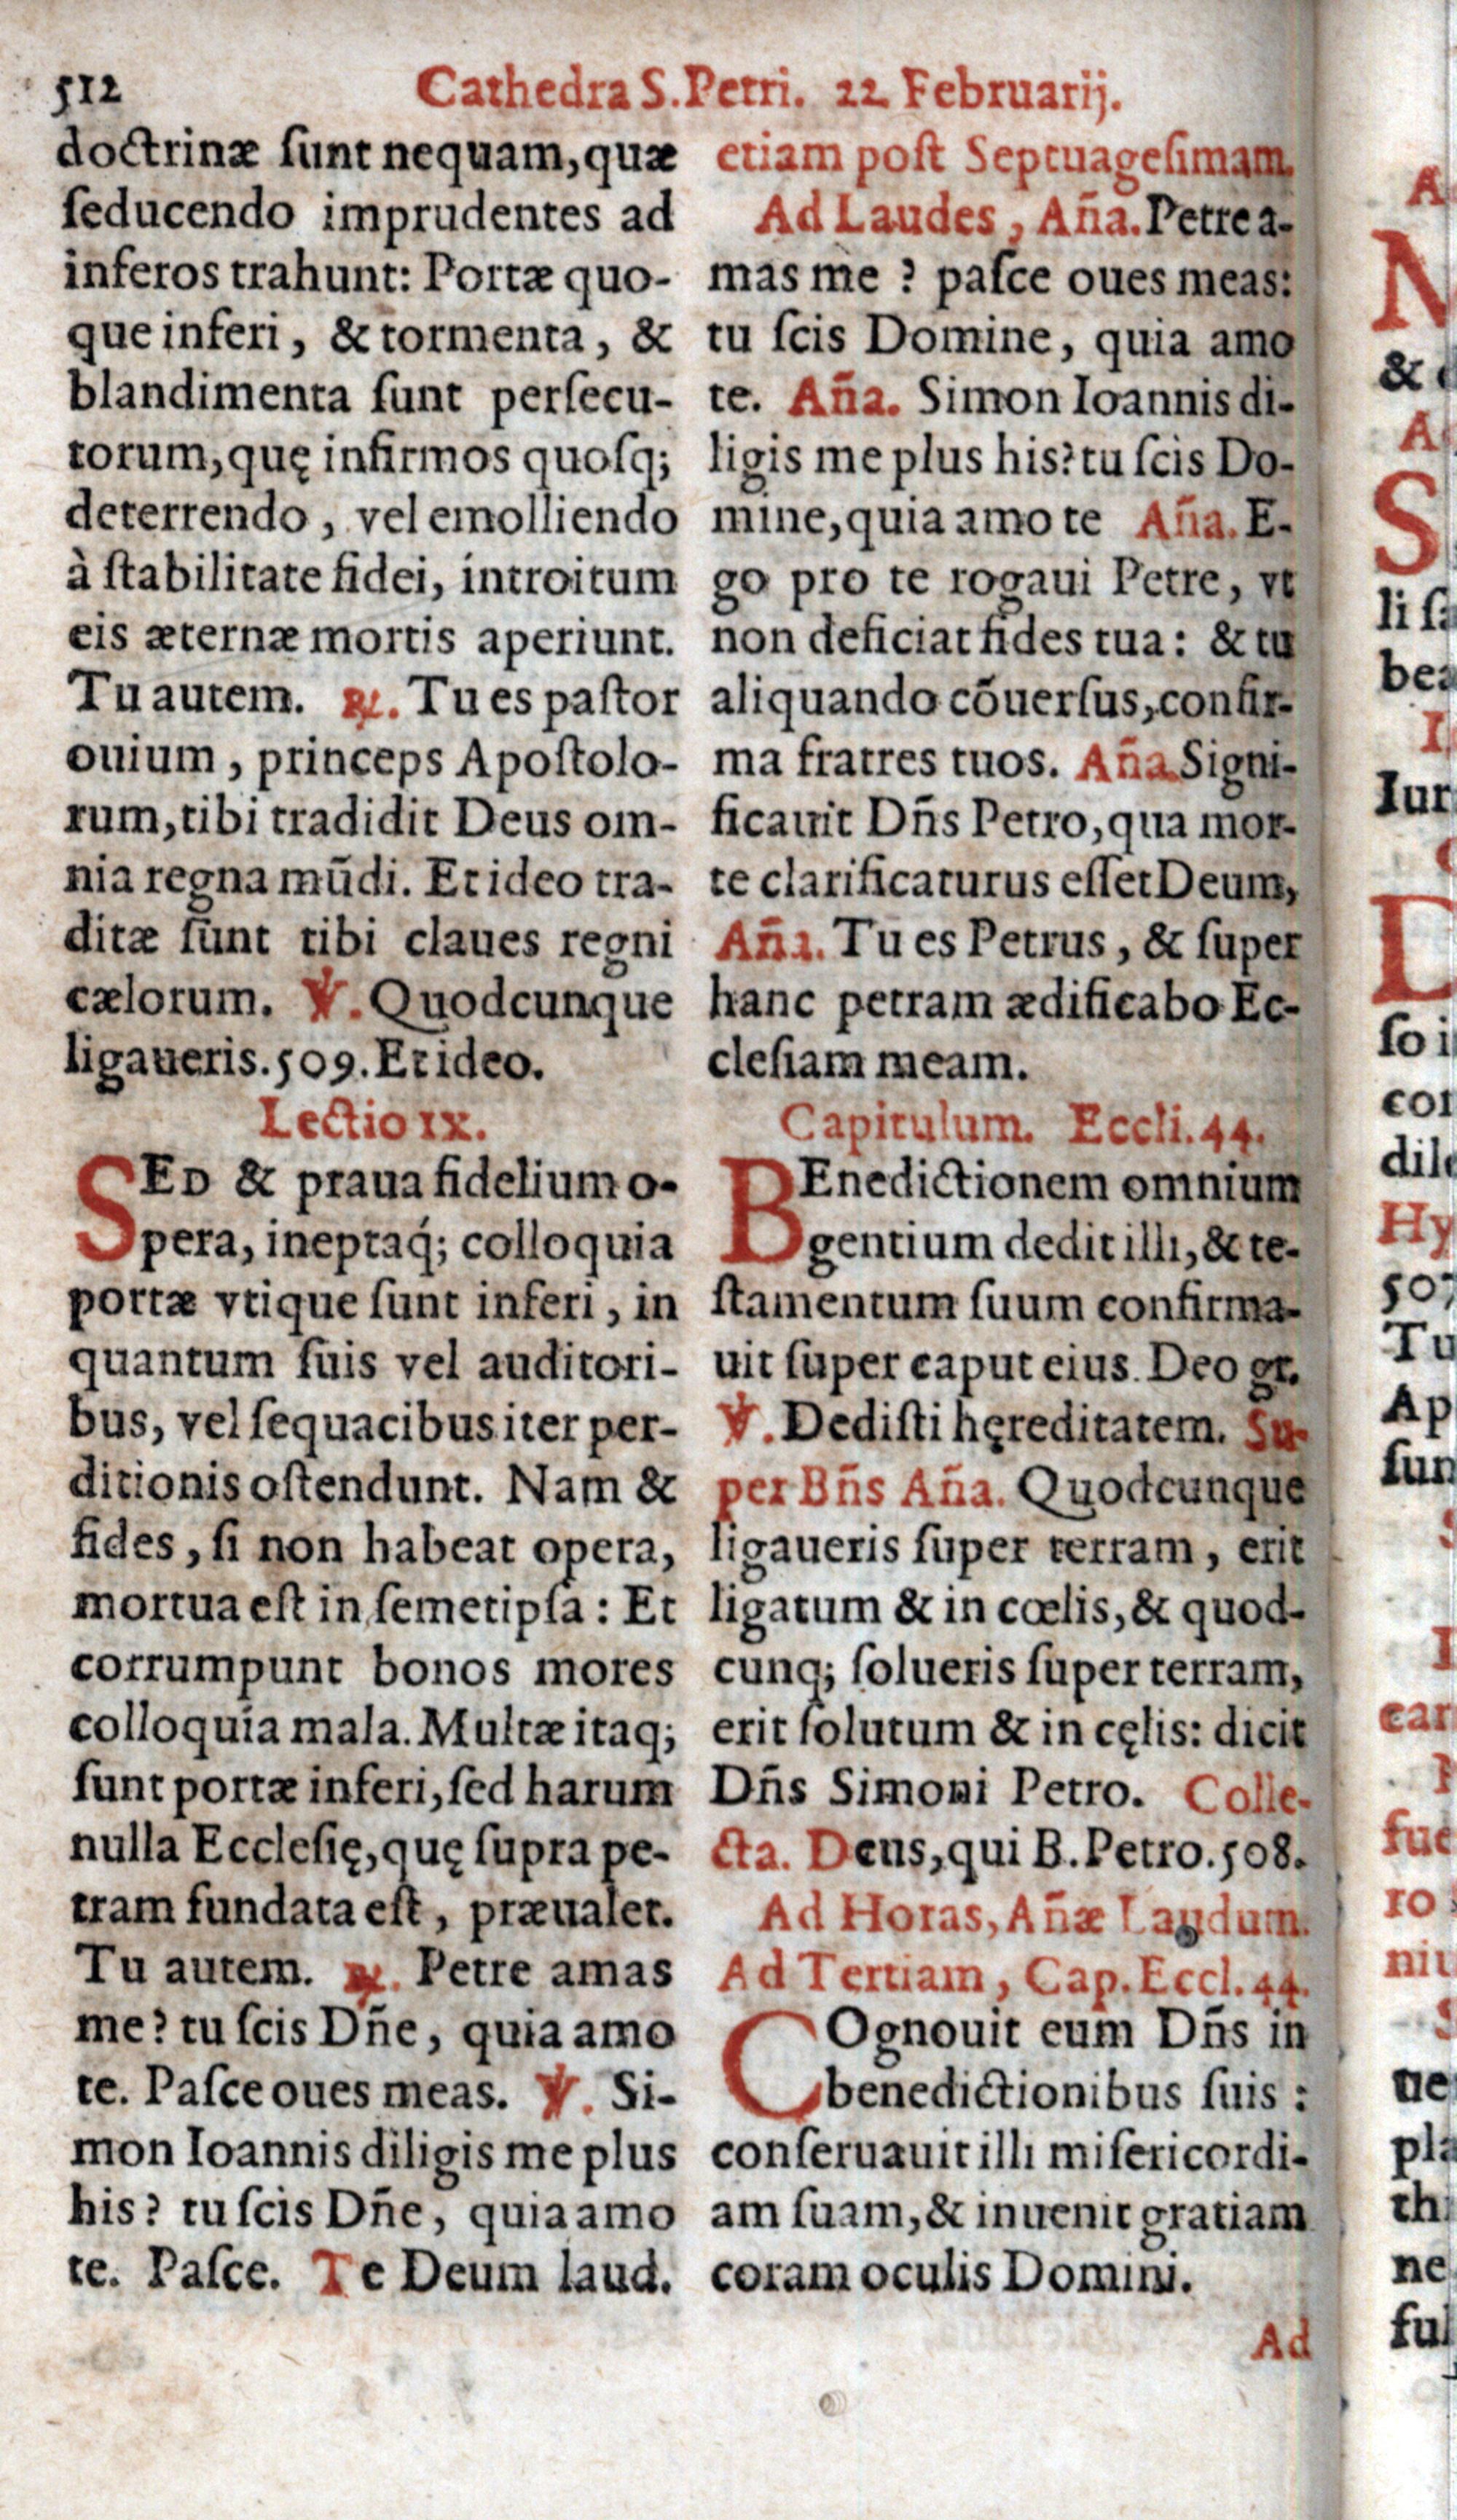 512 Cathedra S. Petri. 22 Februarij.
doctrinæ ſunt nequam, quæ
ſeducendo imprudentes ad
inferos trahunt: Portæ quo-
que inferi, & tormenta, &
blandimenta ſunt perſecu-
torum, quę infirmos quoſq;
deterrendo, vel emolliendo
à ſtabilitate fidei, introitum
eis æternæ mortis aperiunt.
Tu autem. ℟. Tu es paſtor
ouium, princeps Apoſtolo-
rum, tibi tradidit Deus om-
nia regna mūdi. Et ideo tra-
ditæ ſunt tibi claues regni
cælorum. ℣. Quodcunque
ligaueris. 509. Et ideo.
Lectio ix.
SED & praua fidelium o-
pera, ineptaq́; colloquia
portæ vtique ſunt inferi, in
quantum ſuis vel auditori-
bus, vel ſequacibus iter per-
ditionis oſtendunt. Nam &
fides, ſi non habeat opera,
mortua eſt in ſemetipſa: Et
corrumpunt bonos mores
colloquia mala. Multæ itaq;
ſunt portæ inferi, ſed harum
nulla Eccleſię, quę ſupra pe-
tram fundata eſt, præualet.
Tu autem. ℟. Petre amas
me? tu ſcis Dñe, quia amo
te. Paſce oues meas. ℣. Si-
mon Ioannis diligis me plus
his? tu ſcis Dñe, quia amo
te. Paſce. Te Deum laud.
etiam poſt Septuageſimam.
Ad Laudes, Aña. Petre a-
mas me? paſce oues meas:
tu ſcis Domine, quia amo
te. Aña. Simon Ioannis di-
ligis me plus his? tu ſcis Do-
mine, quia amo te Aña. E-
go pro te rogaui Petre, vt
non deficiat fides tua: & tu
aliquando cōuerſus, confir-
ma fratres tuos. Aña. Signi-
ficauit Dñs Petro, qua mor-
te clarificaturus eſſet Deum,
Aña. Tu es Petrus, & ſuper
hanc petram ædificabo Ec-
cleſiam meam.
Capitulum. Eccli. 44.
BEnedictionem omnium
gentium dedit illi, & te-
ſtamentum ſuum confirma-
uit ſuper caput eius. Deo gr.
℣. Dediſti hęreditatem. Su-
per Bñs Aña. Quodcunque
ligaueris ſuper terram, erit
ligatum & in cœlis, & quod-
cunq; ſolueris ſuper terram,
erit ſolutum & in cęlis: dicit
Dñs Simoni Petro. Colle-
cta. Deus, qui B. Petro. 508.
Ad Horas, Añæ Laudum.
Ad Tertiam, Cap. Eccl. 44.
COgnouit eum Dñs in
benedictionibus ſuis:
conſeruauit illi miſericordi-
am ſuam, & inuenit gratiam
coram oculis Domini.
Ad